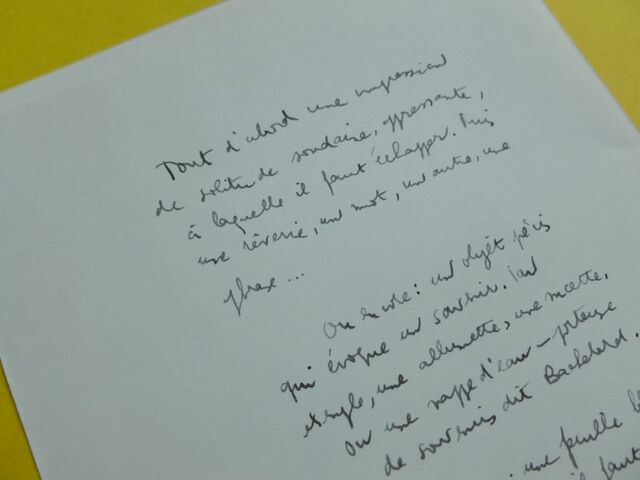 Tout d'abord une impression
de solitude soudaine, oppressante,
à laquelle il faut échapper. Puis
une rêverie, un mot, un autre, une
phrase...
Ou encore : un objet précis
qui évoque un souvenir. Par
exemple, une allumette, une mouette,
ou une nappe d'eau - porteuse
de souvenirs dit Bachelard.
une feuille
il faut